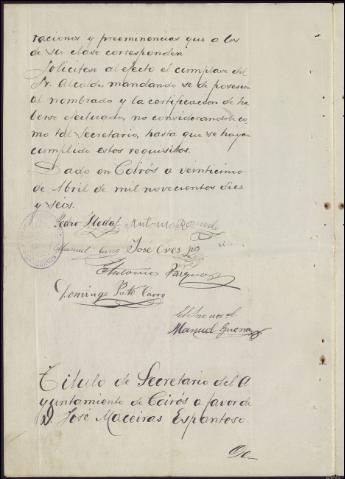 raciones y preeminencias que a los
de su clase corresponden.
Solicitese al efecto el cumplase del
Sr. Alcalde mandando se de posesion
al nombrado y la certificacion de ha
berse efectuado, no considerandole co
mo tal Secretario, hasta que se hayan
cumplido estos requisitos.
Dado en Coirós a veinticinco
de Abril de mil novecientos diez
y seis.
Pedro Antonio
Manuel José
Antonio
Domingo Pato
Manuel
Titulo de Secretario del A
yuntamiento de Coirós a favor de
D. José Maceiras Espantoso